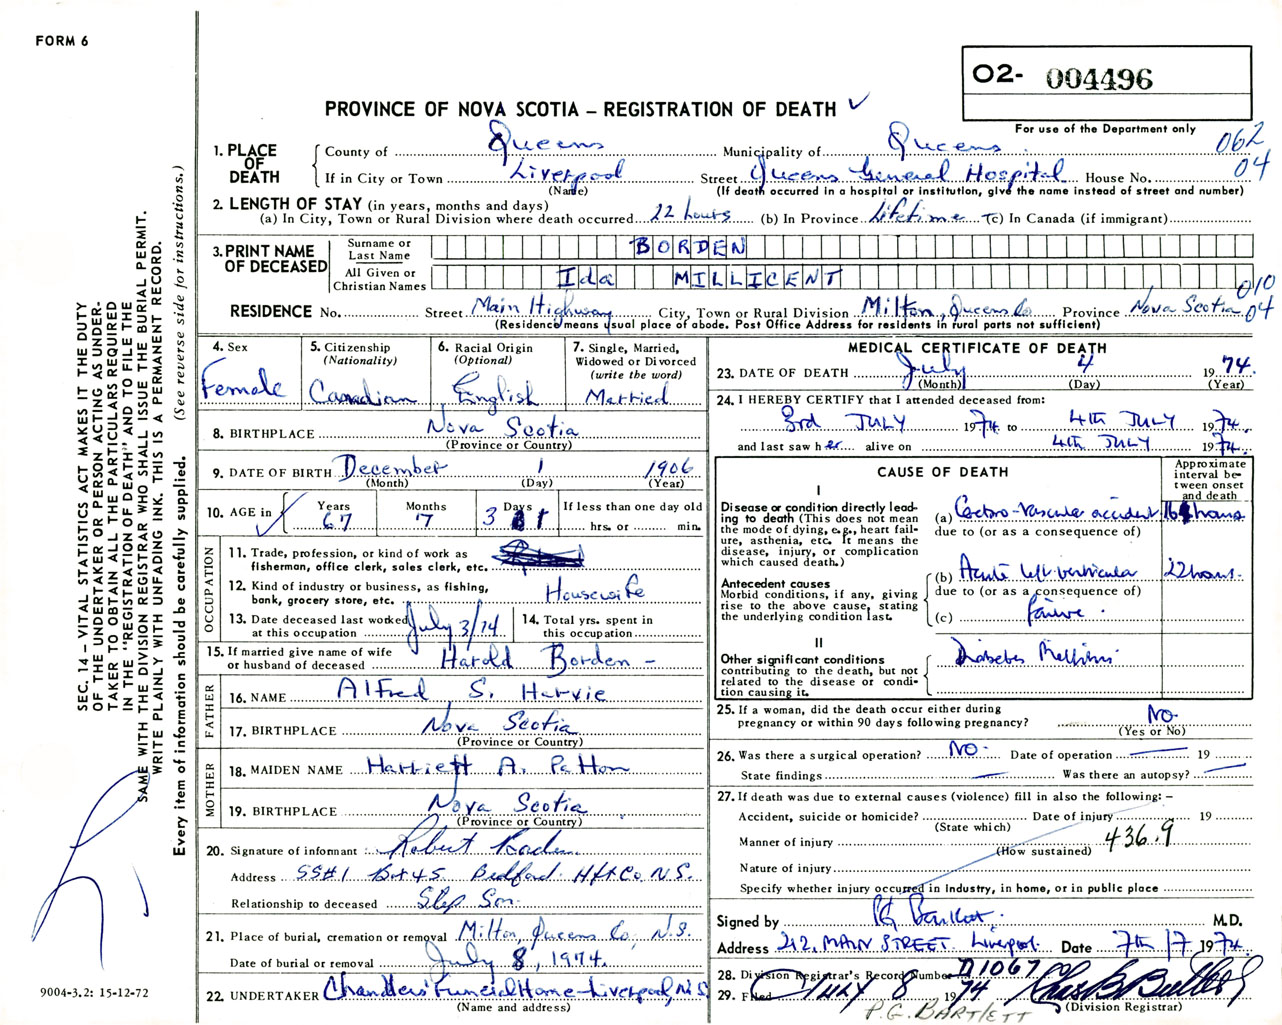 FORM 6
O2- 004496
PROVINCE OF NOVA SCOTIA – REGISTRATION OF DEATH ✓
For use of the Department only
062
04
1. PLACE OF DEATH
County of Queens Municipality of Queens
If in City or Town Liverpool Street Queens General Hospital House No.
(Name) (If death occurred in a hospital or institution, give the name instead of street and number)
2. LENGTH OF STAY (in years, months and days)
(a) In City, Town or Rural Division where death occurred 22 hours (b) In Province Lifetime (c) In Canada (if immigrant)
3. PRINT NAME OF DECEASED
Surname or Last Name BORDEN
All Given or Christian Names Ida MILLICENT
010
04
RESIDENCE No. Street Main Highway City, Town or Rural Division Milton, Queens Co Province Nova Scotia
(Residence means usual place of abode. Post Office Address for residents in rural parts not sufficient)
4. Sex
Female
5. Citizenship
(Nationality)
Canadian
6. Racial Origin
(Optional)
English
7. Single, Married,
Widowed or Divorced
(write the word)
Married
8. BIRTHPLACE Nova Scotia
(Province or Country)
9. DATE OF BIRTH December 1 1906
(Month) (Day) (Year)
10. AGE in Years 67 Months 7 Days 3
If less than one day old
hrs. or min.
OCCUPATION
11. Trade, profession, or kind of work as
fisherman, office clerk, sales clerk, etc.
12. Kind of industry or business, as fishing,
bank, grocery store, etc. Housewife
13. Date deceased last worked
at this occupation July 3/74
14. Total yrs. spent in
this occupation
15. If married give name of wife
or husband of deceased Harold Borden –
FATHER
16. NAME Alfred S. Harvie
17. BIRTHPLACE Nova Scotia
(Province or Country)
MOTHER
18. MAIDEN NAME Harriett A. Patton
19. BIRTHPLACE Nova Scotia
(Province or Country)
20. Signature of informant Robert Borden
Address SS#1 Box 45 Bedford Hfx Co N.S.
Relationship to deceased Step Son
21. Place of burial, cremation or removal Milton, Queens Co, N.S.
Date of burial or removal July 8, 1974.
22. UNDERTAKER Chandlers' Funeral Home – Liverpool, N.S.
(Name and address)
MEDICAL CERTIFICATE OF DEATH
23. DATE OF DEATH July 4 1974.
(Month) (Day) (Year)
24. I HEREBY CERTIFY that I attended deceased from:
3rd JULY 1974 to 4th JULY 1974.
and last saw her alive on 4th JULY 1974.
CAUSE OF DEATH
Approximate
interval be-
tween onset
and death
I
Disease or condition directly lead-
ing to death (This does not mean
the mode of dying, e.g., heart fail-
ure, asthenia, etc. It means the
disease, injury, or complication
which caused death.)
(a) Cerebro-Vascular accident 16 hours
due to (or as a consequence of)
Antecedent causes
Morbid conditions, if any, giving
rise to the above cause, stating
the underlying condition last.
(b) Acute left ventricular 22 hours.
due to (or as a consequence of)
(c) failure.
II
Other significant conditions
contributing to the death, but not
related to the disease or condi-
tion causing it.
Diabetes Mellitus
25. If a woman, did the death occur either during
pregnancy or within 90 days following pregnancy? No.
(Yes or No)
26. Was there a surgical operation? NO. Date of operation — 19
State findings — Was there an autopsy? —
27. If death was due to external causes (violence) fill in also the following: –
Accident, suicide or homicide? Date of injury 19
(State which)
Manner of injury 436.9
(How sustained)
Nature of injury
Specify whether injury occurred in industry, in home, or in public place
Signed by PG Bartlett. M.D.
Address 212, MAIN STREET Liverpool. Date 7th/7 1974.
28. Division Registrar's Record Number D1067
29. Filed July 8 1974
(Division Registrar)
P.G. BARTLETT
SEC. 14 – VITAL STATISTICS ACT MAKES IT THE DUTY
OF THE UNDERTAKER OR PERSON ACTING AS UNDER-
TAKER TO OBTAIN ALL THE PARTICULARS REQUIRED
IN THE "REGISTRATION OF DEATH" AND TO FILE THE
SAME WITH THE DIVISION REGISTRAR WHO SHALL ISSUE THE BURIAL PERMIT.
WRITE PLAINLY WITH UNFADING INK. THIS IS A PERMANENT RECORD.
Every item of information should be carefully supplied. (See reverse side for instructions.)
9004-3.2: 15-12-72